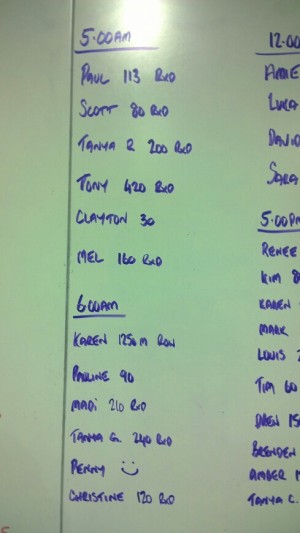 5.00AM
PAUL 113 RxD
SCOTT 80 RxD
TANYA R 200 RxD
TONY 420 RxD
CLAYTON 30
MEL 160 RxD
6.00AM
KAREN 1250m ROW
PAULINE 90
MADI 210 RxD
TANYA G. 240 RxD
PENNY
CHRISTINE 120 RxD
12.00
AMIE
LUKA
DAVID
SARA
5.00PM
RENEE
KIM 8
KAREN
MARK
LOUIS
TIM 60
DREN 15
BRENDEN
AMBER 1
TANYA C.